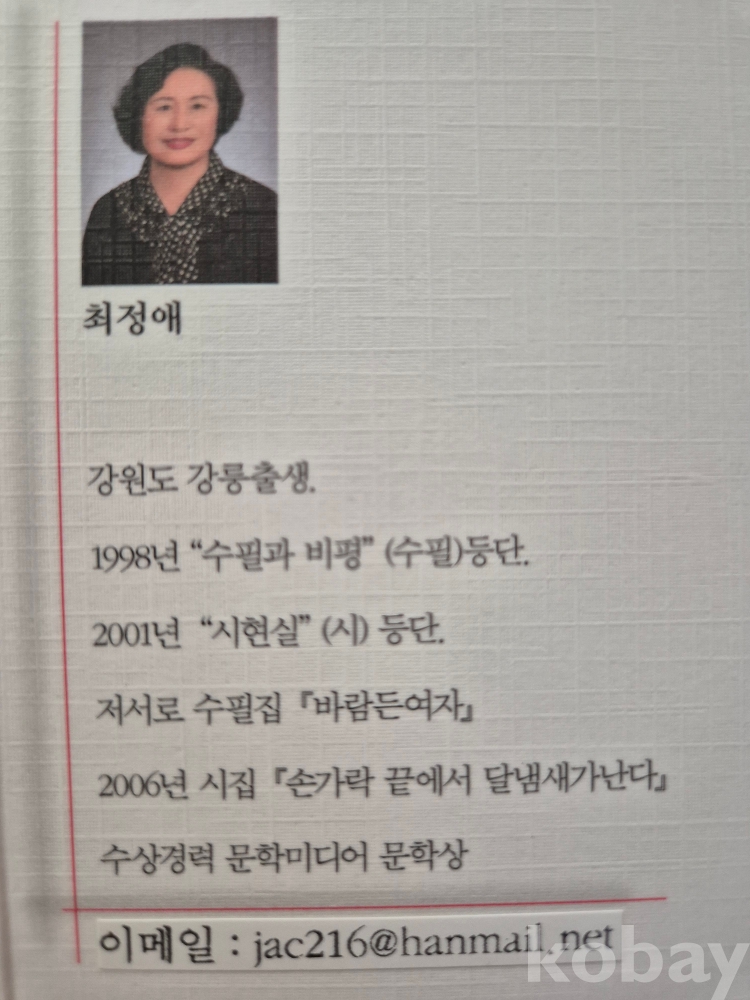 최정애
강원도 강릉출생.
1998년 “수필과 비평” (수필)등단.
2001년 “시현실” (시) 등단.
저서로 수필집 『바람든여자』
2006년 시집 『손가락 끝에서 달냄새가난다』
수상경력 문학미디어 문학상
이메일 : jac216@hanmail.net
kobay